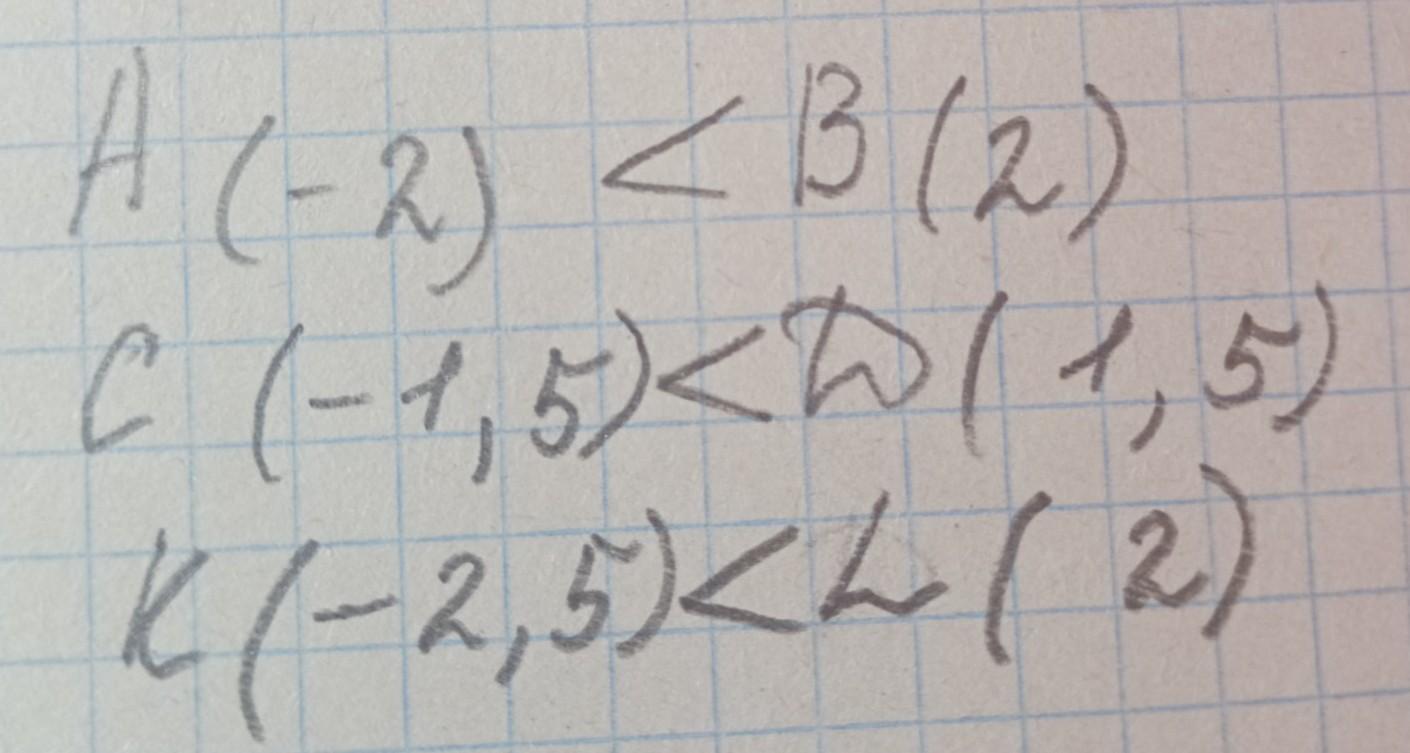 A (-2) < B (2)
C (-1,5) < D (1,5)
K (-2,5) < L (2)